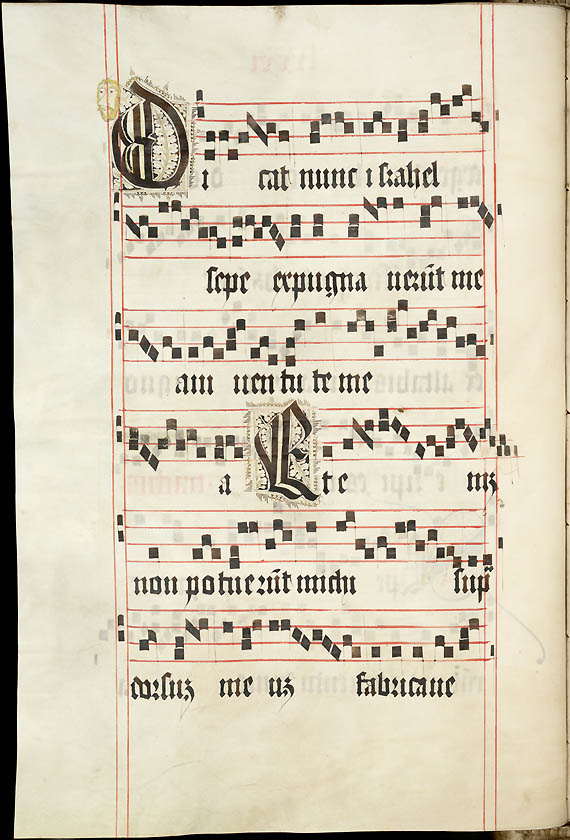 Di cat nunc israhel
sepe expugna uerūt me
a iu uen tu te me
a Et e niʒ
non potuerūt michi sup̄
dorsuʒ me uʒ fabricaue